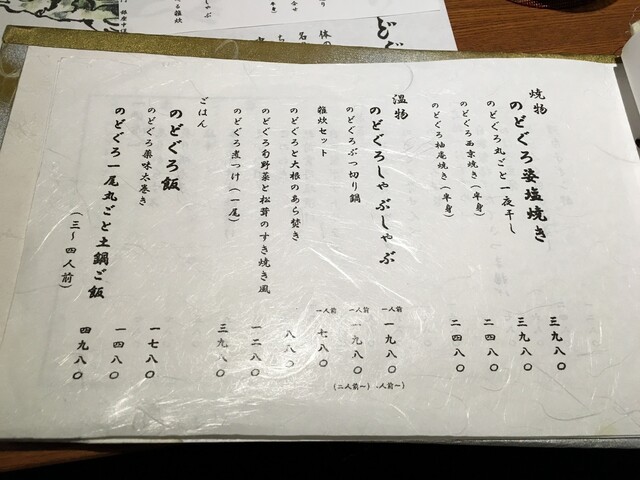 焼物
のどぐろ姿塩焼き 三九八〇
のどぐろ丸ごと一夜干し 三九八〇
のどぐろ西京焼き(半身) 二四八〇
のどぐろ柚庵焼き(半身) 二四八〇
温物
のどぐろしゃぶしゃぶ 一人前 一九八〇
のどぐろぶつ切り鍋 一人前 一九八〇 (二人前〜)
雑炊セット 一人前 七八〇
のどぐろと大根のあら焚き 八八〇
のどぐろ旬野菜と松茸のすき焼き風 一二八〇
のどぐろ煮つけ(一尾) 三九八〇
ごはん
のどぐろ飯 一七八〇
のどぐろ薬味太巻き 一四八〇
のどぐろ一尾丸ごと土鍋ご飯 四九八〇
(三〜四人前)